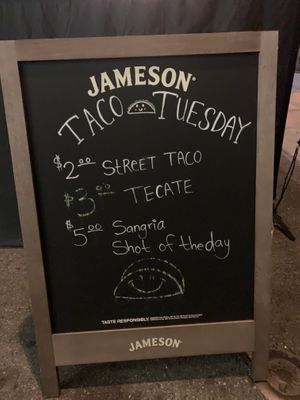 JAMESON
TACO TUESDAY
$2.00 STREET TACO
$3.00 TECATE
$5.00 Sangria
Shot of the day
TASTE RESPONSIBLY.
JAMESON